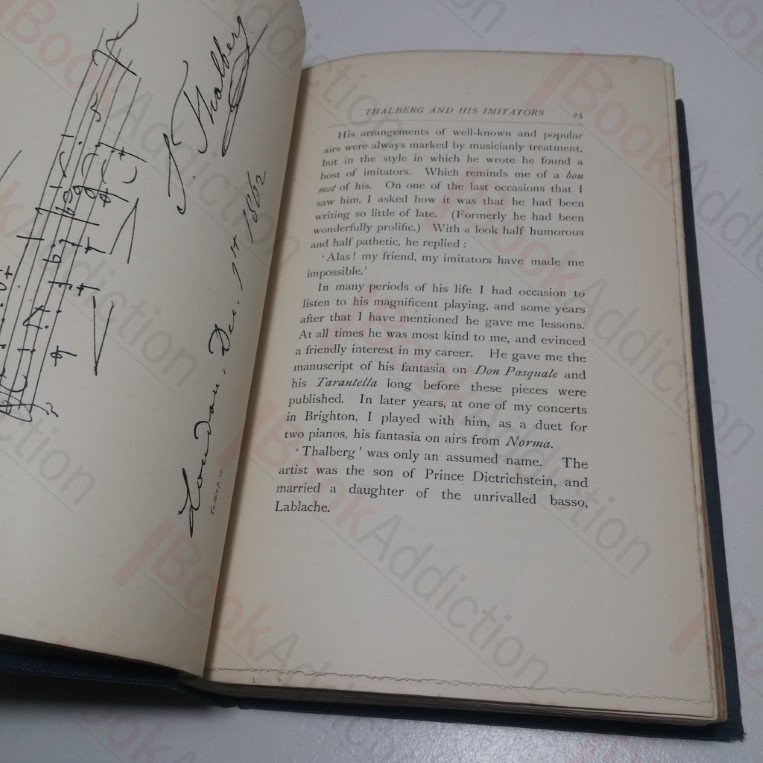 S. Thalberg
London. Dec. 9th 1862
THALBERG AND HIS IMITATORS 25
His arrangements of well-known and popular
airs were always marked by musicianly treatment,
but in the style in which he wrote he found a
host of imitators. Which reminds me of a bon
mot of his. On one of the last occasions that I
saw him, I asked how it was that he had been
writing so little of late. (Formerly he had been
wonderfully prolific.) With a look half humorous
and half pathetic, he replied :
'Alas! my friend, my imitators have made me
impossible.'
In many periods of his life I had occasion to
listen to his magnificent playing, and some years
after that I have mentioned he gave me lessons.
At all times he was most kind to me, and evinced
a friendly interest in my career. He gave me the
manuscript of his fantasia on Don Pasquale and
his Tarantella long before these pieces were
published. In later years, at one of my concerts
in Brighton, I played with him, as a duet for
two pianos, his fantasia on airs from Norma.
'Thalberg' was only an assumed name. The
artist was the son of Prince Dietrichstein, and
married a daughter of the unrivalled basso,
Lablache.
BookAddiction